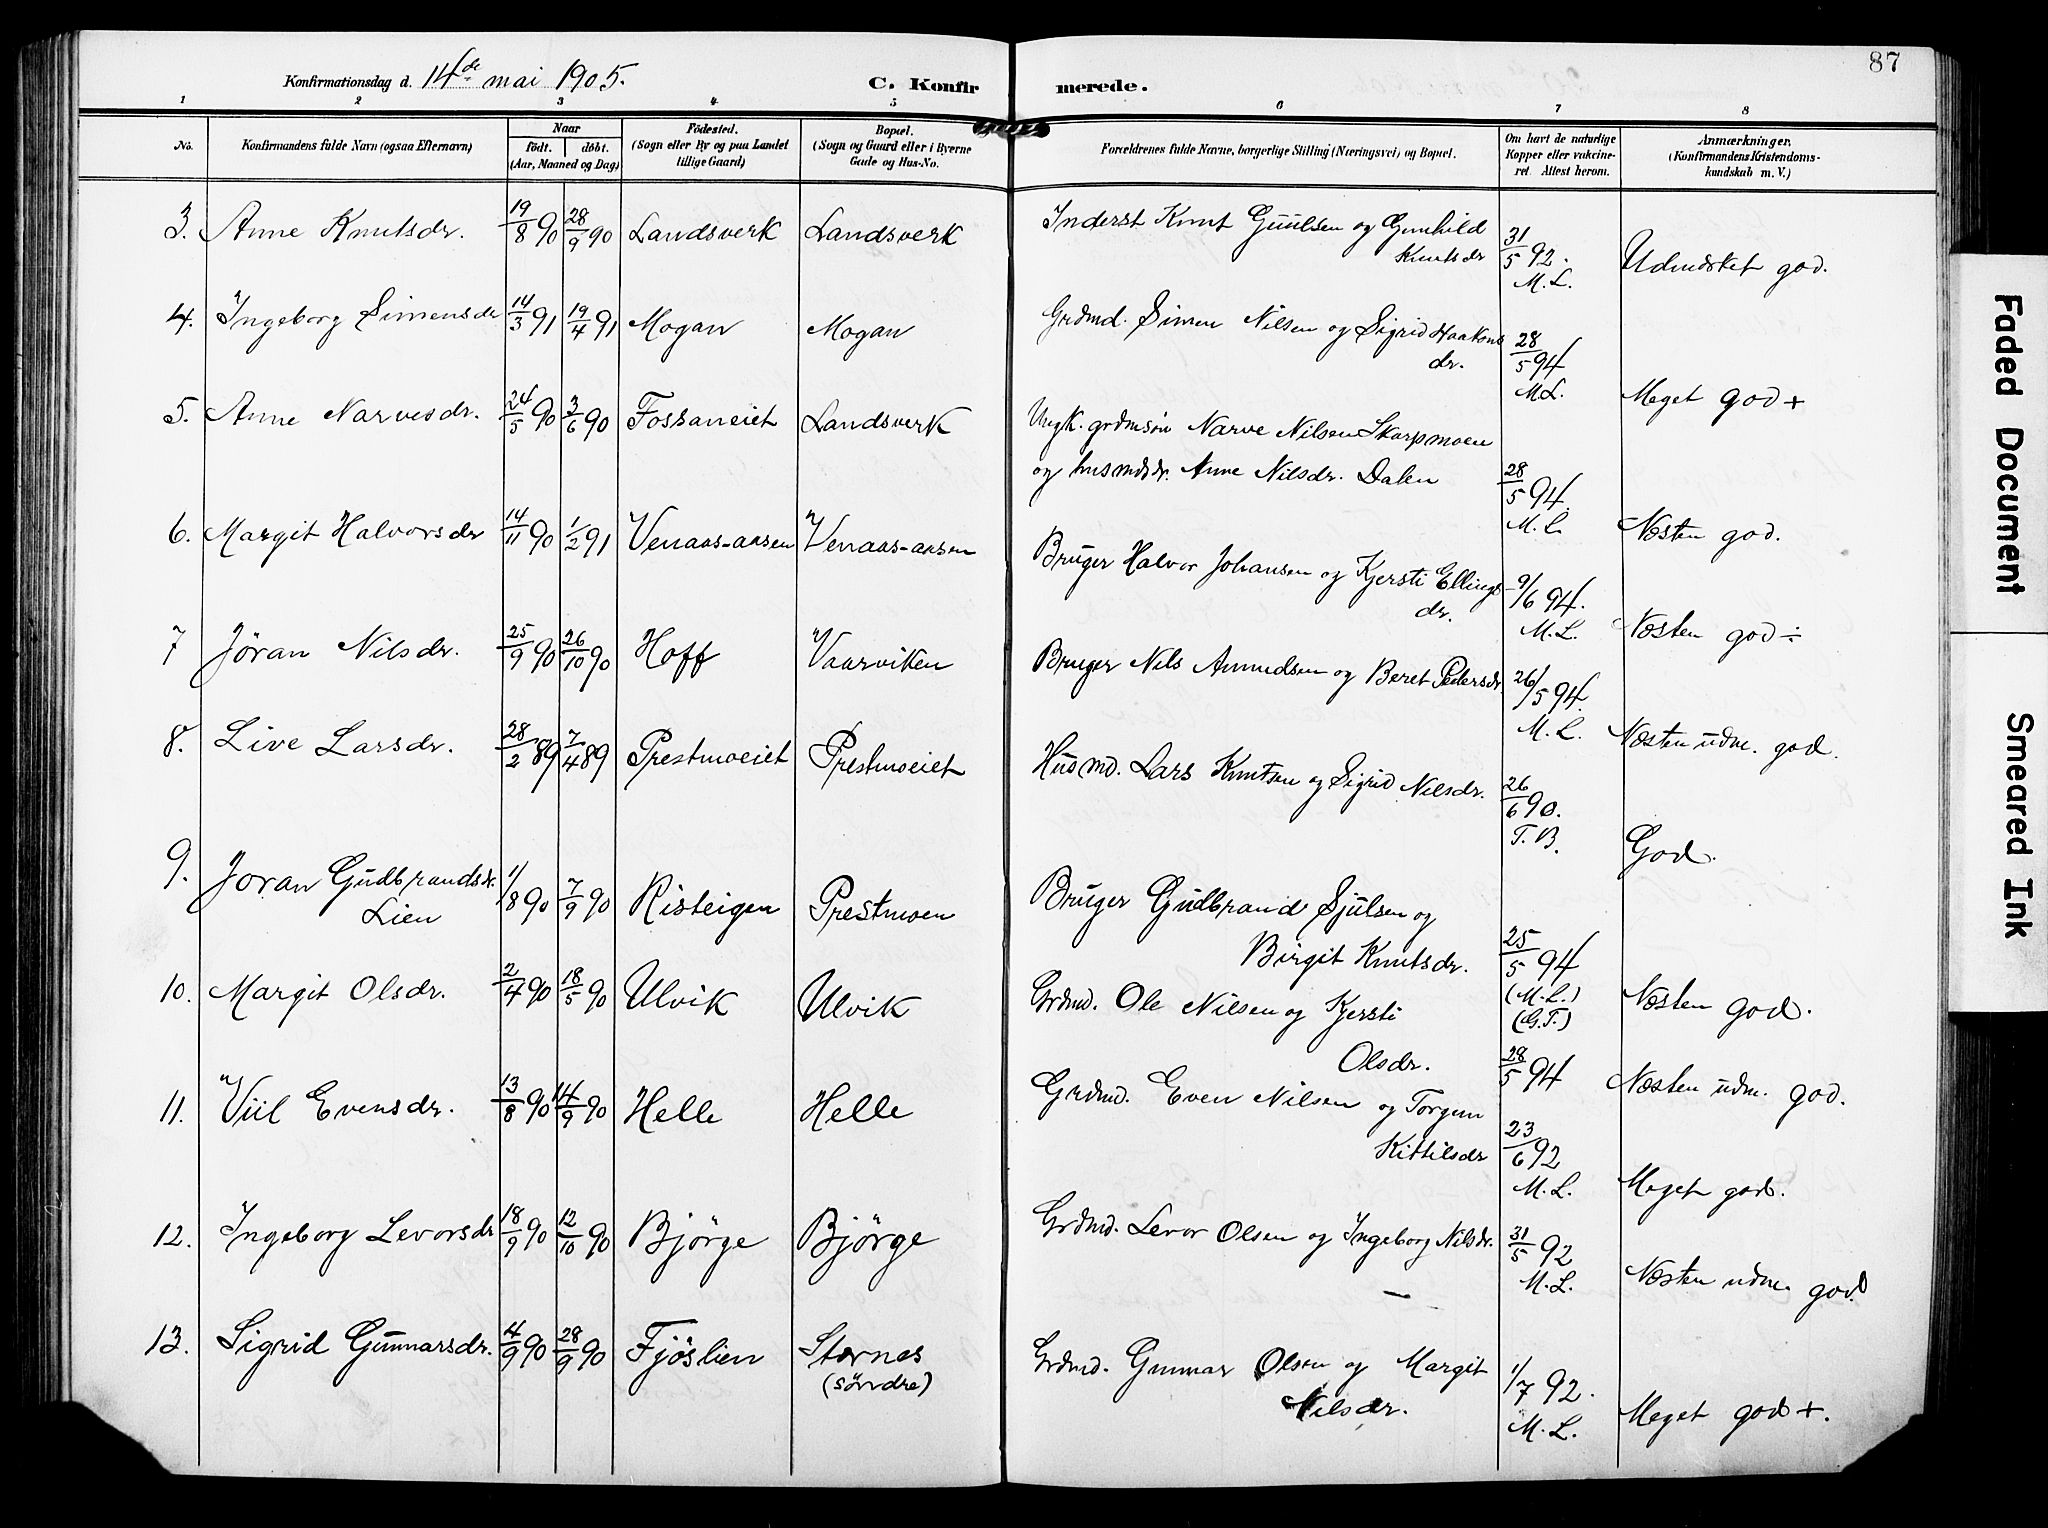 87
Konfirmationsdag d. 14de mai 1905. C. Konfirmerede.
1 2 3 4 5 6 7 8
No. Konfirmandens fulde Navn (ogsaa Efternavn) Naar født. døbt. (Aar, Maaned og Dag) Fødested. (Sogn eller By og paa Landet tillige Gaard) Bopæl. (Sogn og Gaard eller i Byerne Gade og Hus-No. Forældrenes fulde Navne, borgerlige Stilling (Næringsvei) og Bopæl. Om havt de naturlige Kopper eller vakcineret. Attest herom. Anmærkninger. (Konfirmandens Kristendomskundskab m. V.)
3. Anne Knutsdr. 19/8 90 28/9 90 Landsverk Landsverk Inderst Knut Guulsen og Gunhild
Knutsdr 31/5 92. M.L. Udmerket god.
4. Ingeborg Simensdr 14/3 91 19/4 91 Mogan Mogan Grdmd. Simen Nilsen og Sigrid Haaksns
dr. 28/5 94 M.L. Meget god +
5. Anne Narvesdr. 24/5 90 3/6 90 Fossaneiet Landsverk Ungk. grdmsøn Narve Nilsen Skarpmoen
og husmdsdr. Anne Nilsdr. Dalen 28/5 94. M.L. Næsten god.
6. Margit Halvorsdr 14/11 90 1/2 91 Venaas-aasen Venaas-aasen Bruger Halvor Johansen og Kjersti Ellings
dr. 9/6 94. M.L. Næsten god ÷
7 Jøran Nilsdr. 25/9 90 26/10 90 Hoff Vaarviken Bruger Nils Amundsen og Beret Pedersdr. 26/5 94. M.L. Næsten udm. god.
8. Live Larsdr. 28/2 89 7/4 89 Prestmoeiet Prestmoeiet Husmd. Lars Knutsen og Sigrid Nilsdr. 26/6 90. T.B. God.
9. Joran Gudbrandsdr. 1/8 90 7/9 90 Risteigen Prestmoen Bruger Gudbrand Sjulsen og
Lien Birgit Knutsdr. 25/5 94 (M.L.) (G.T.) Næsten god.
10. Margit Olsdr. 2/4 90 18/5 90 Ulvik Ulvik Grdmd. Ole Nilsen og Kjersti
Olsdr. 28/5 94 Næsten udm. god.
11. Viil Evensdr. 13/8 90 14/9 90 Helle Helle Grdmd. Even Nilsen og Torgun
Kittilsdr 23/6 92 M.L. Meget god.
12. Ingeborg Levorsdr 18/9 90 12/10 90 Bjørge Bjørge Grdmd. Levor Olsen og Ingeborg Nilsdr. 31/5 92 M.L. Næsten udm. god
13. Sigrid Gunnarsdr. 4/9 90 28/9 90 Fjøslien Stærnes
(søndre) Grdmd. Gunnar Olsen og Margit
Nilsdr. 1/7 92. M.L. Meget god +.
Faded Document
Smeared Ink